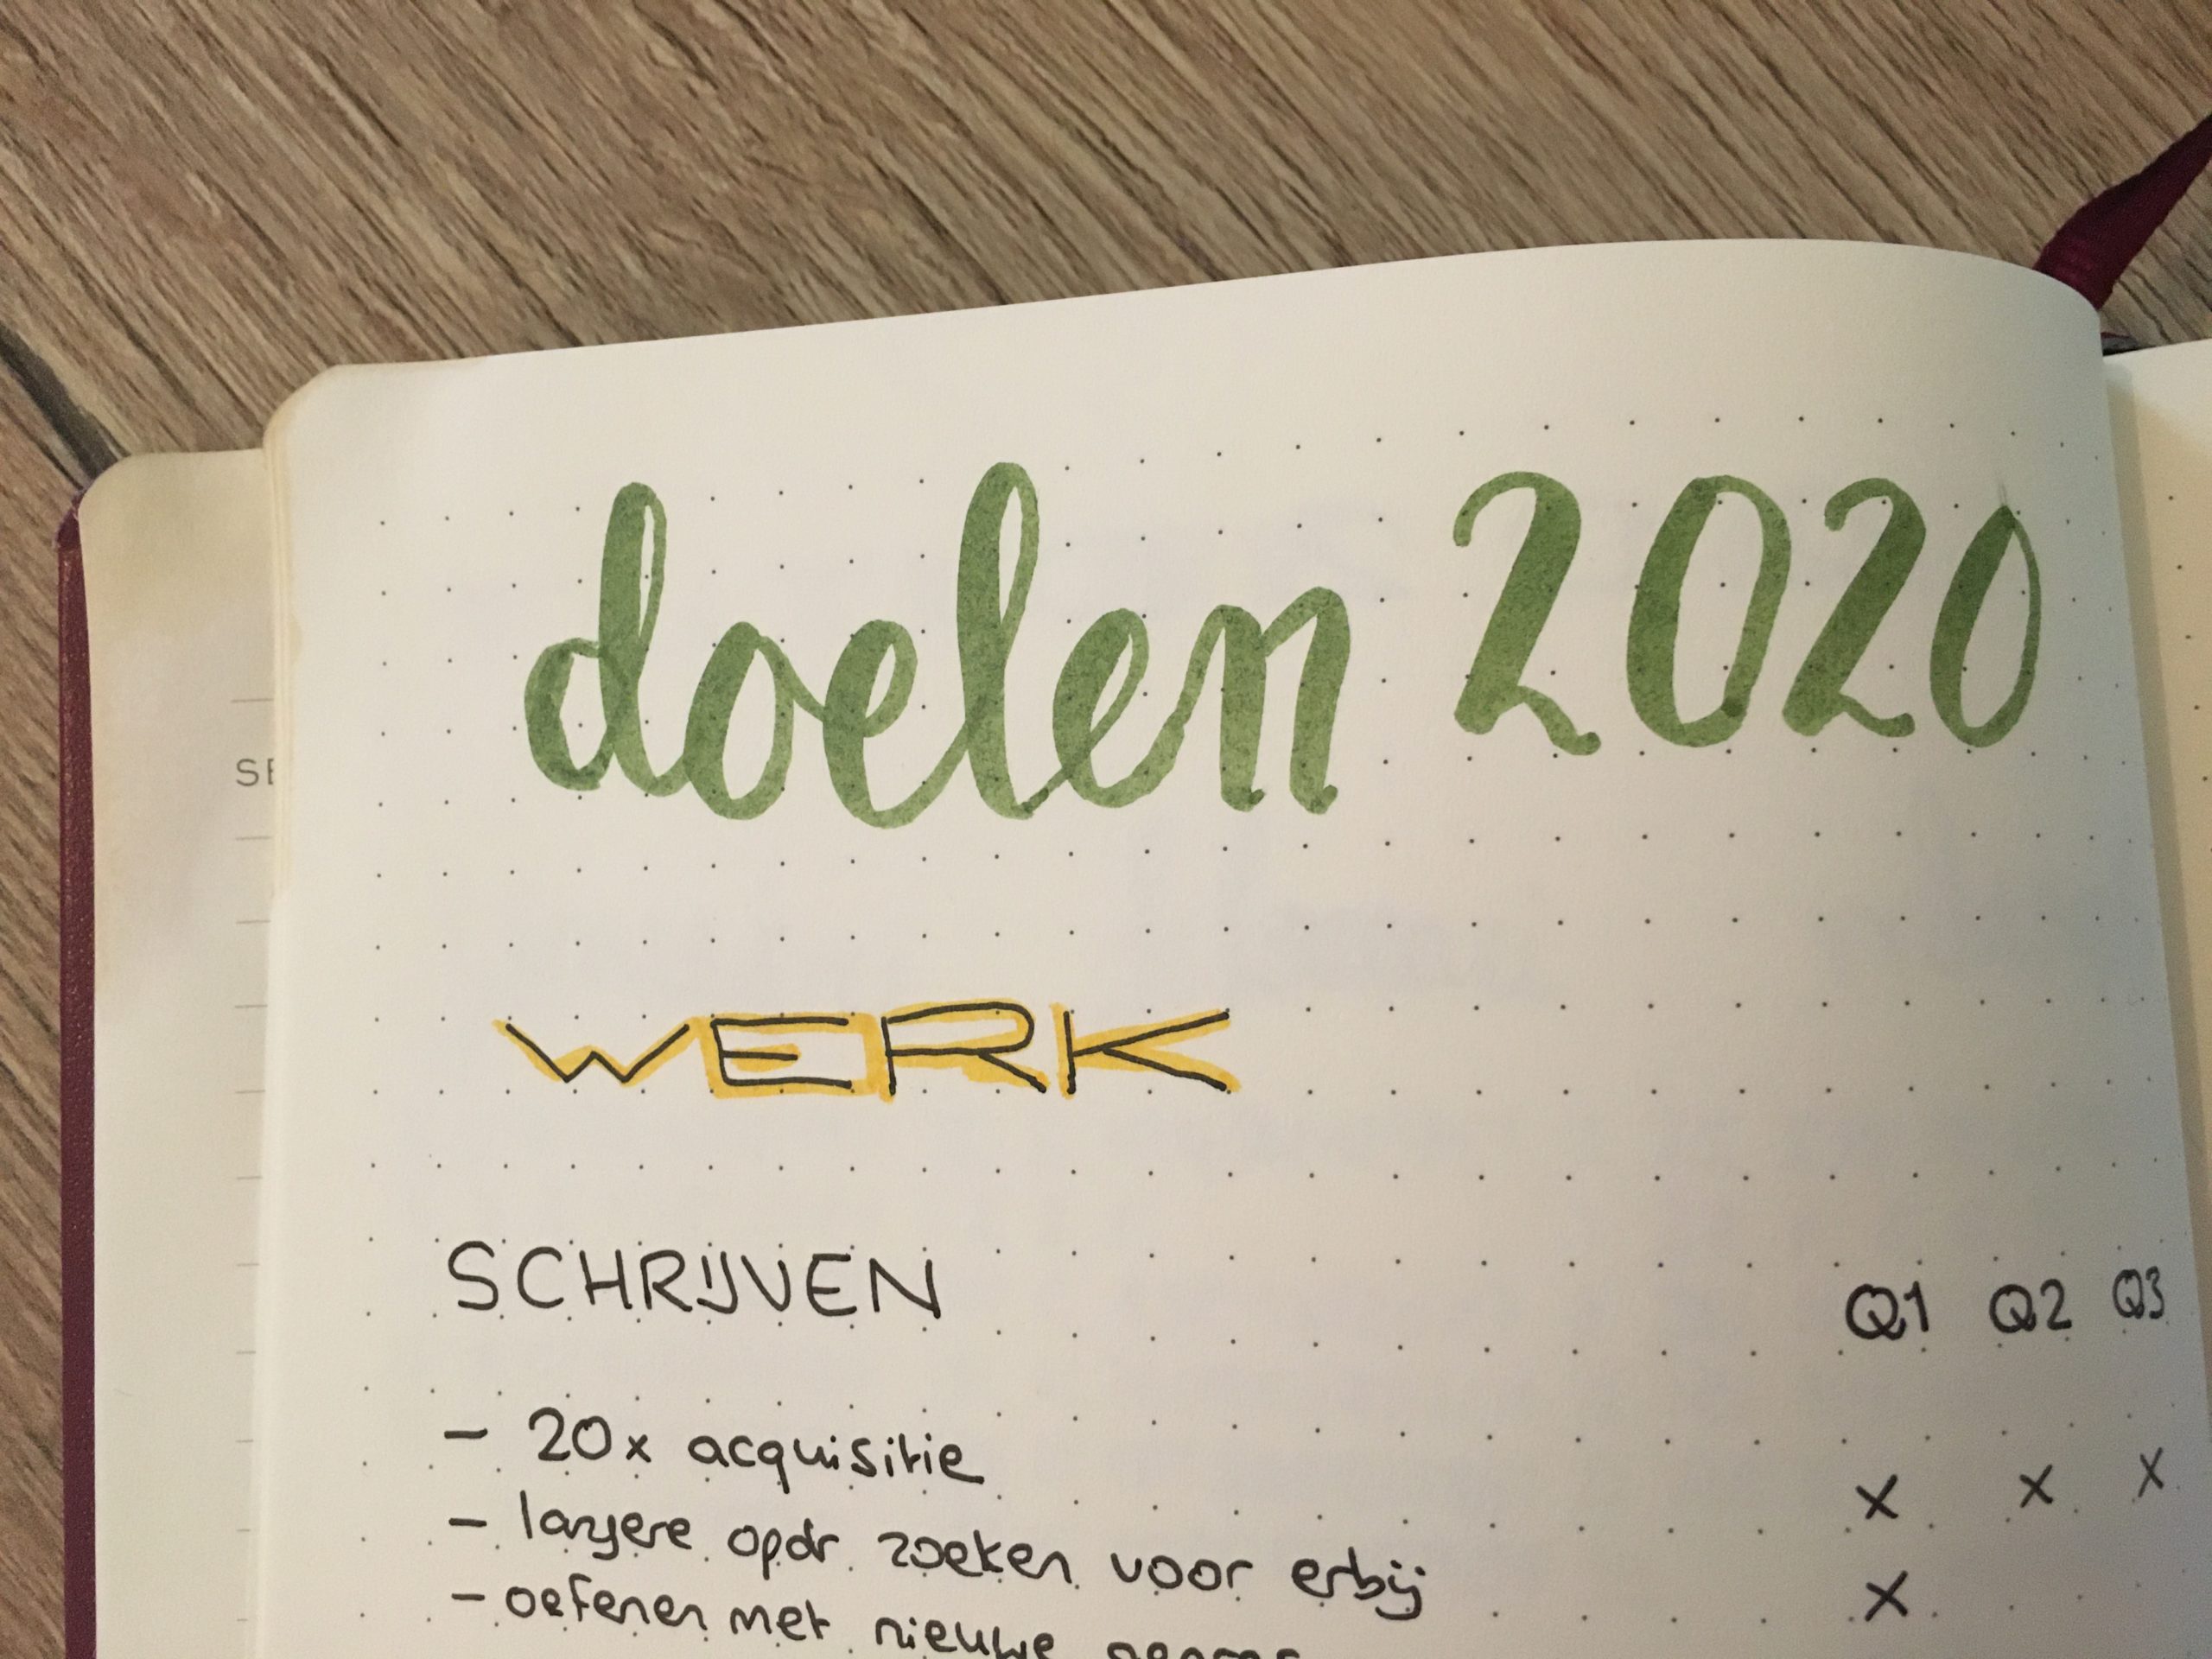 doelen 2020
SE
WERK
SCHRIJVEN Q1 Q2 Q3
- 20x acquisitie x x x
- langere opdr. zoeken voor erbij x
- oefenen met nieuwe